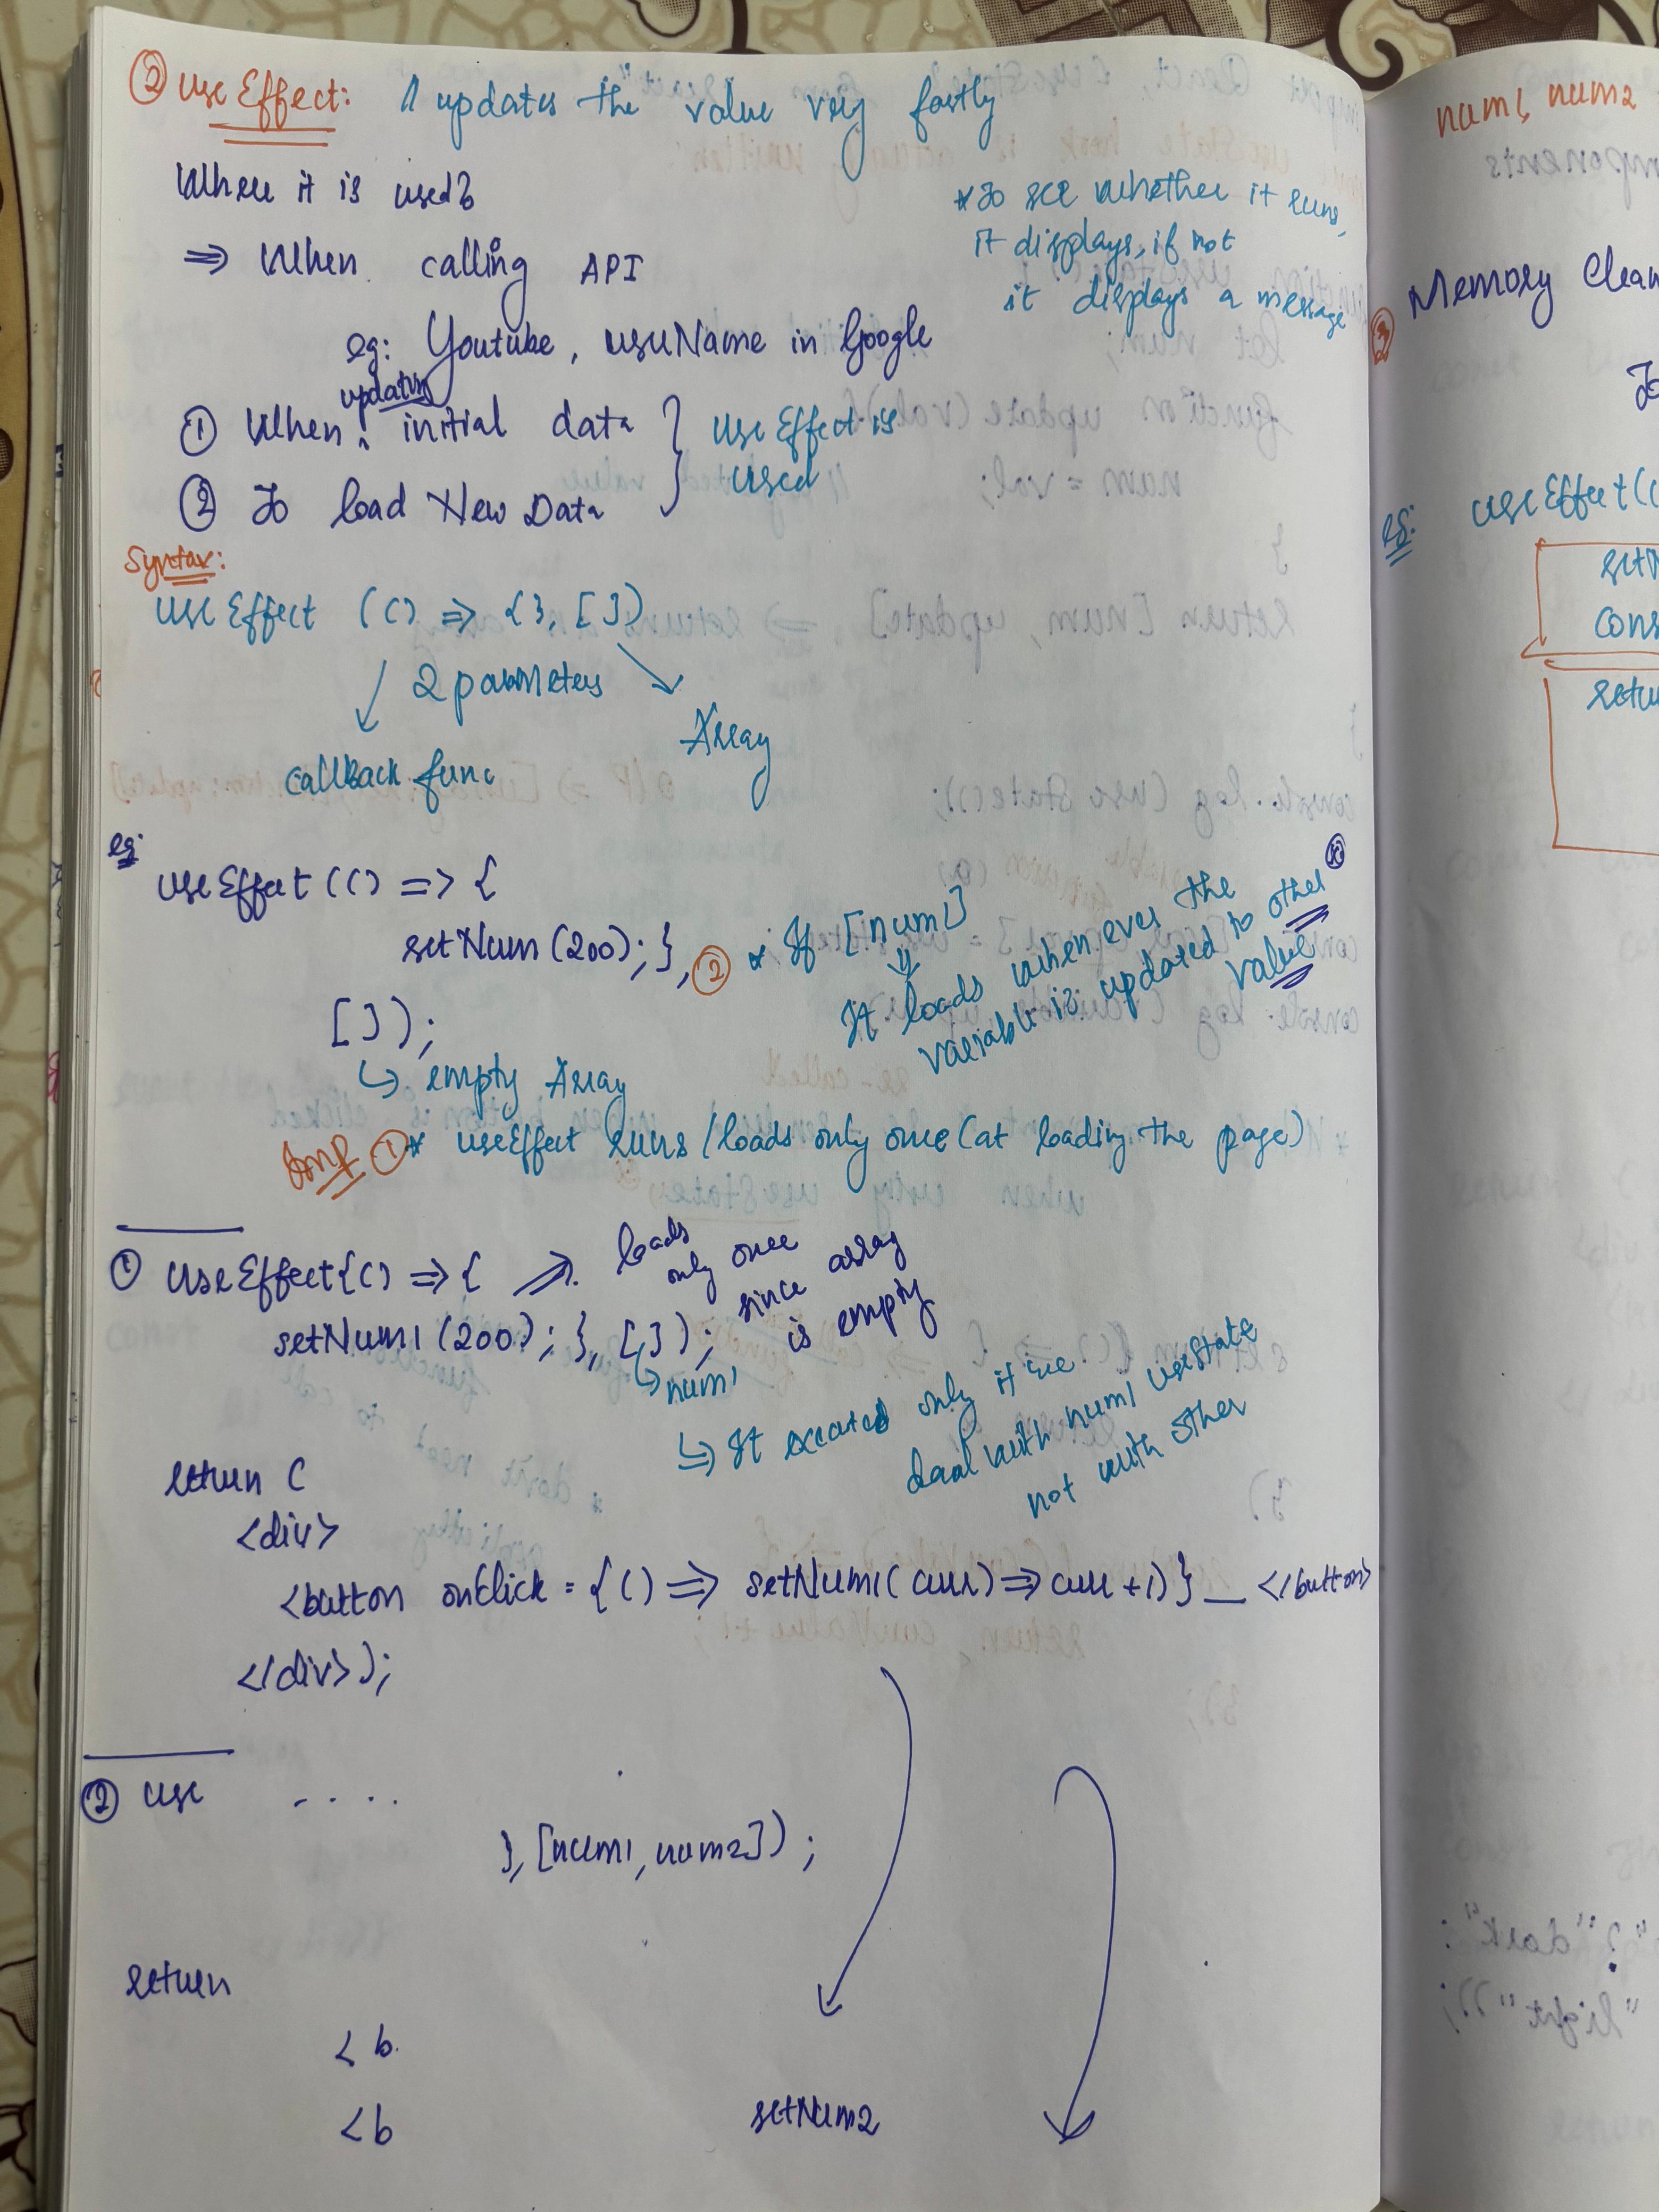 ② UseEffect: // updates the value very fastly
When it is used?
⇒ When calling API
* To see whether it runs,
it displays, if not
it displays a message
eg: Youtube, userName in Google
updating
① When initial data
② To load New Data
UseEffect is
used
Syntax:
UseEffect (() => {}, [])
2 parameters
callback func
Array
eg:
UseEffect (() => {
setNum (200); },
[ ]);
↳ empty Array
② * If [num1]
It loads when ever the
variable is updated to other
value
Imp ① * useEffect runs/loads only once (at loading the page)
① UseEffect {() => { ⇒ loads
only once
since array
is empty
setNum1 (200); }, [ ]);
↳ num1
↳ It executed only if we
deal with num1 usestate
not with other
return (
<div>
<button onClick = {() => setNum1( curr) => curr +1)} _ </button>
</div>);
② Use ....
}, [num1, num2]);
return
<b
<b
setNum2
num1, num2
③ Memory Clean
To
eg: useEffect((
setN
cons
retu